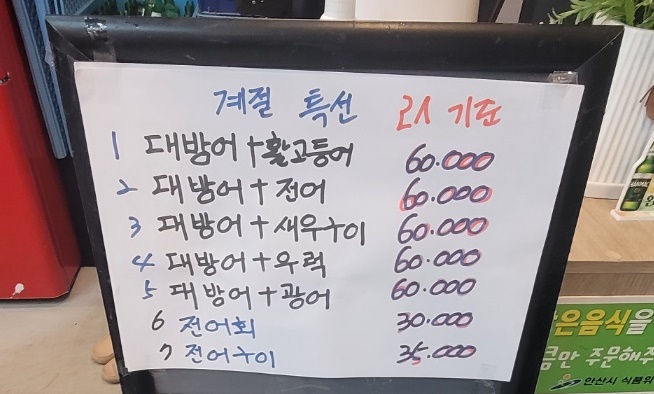 계절 특선 2人 기준
1 대방어+활고등어 60.000
2 대방어+전어 60.000
3 대방어+새우구이 60.000
4 대방어+우럭 60.000
5 대방어+광어 60.000
6 전어회 30.000
7 전어구이 35.000
은음식을
큼만 주문해
안산시 식품위